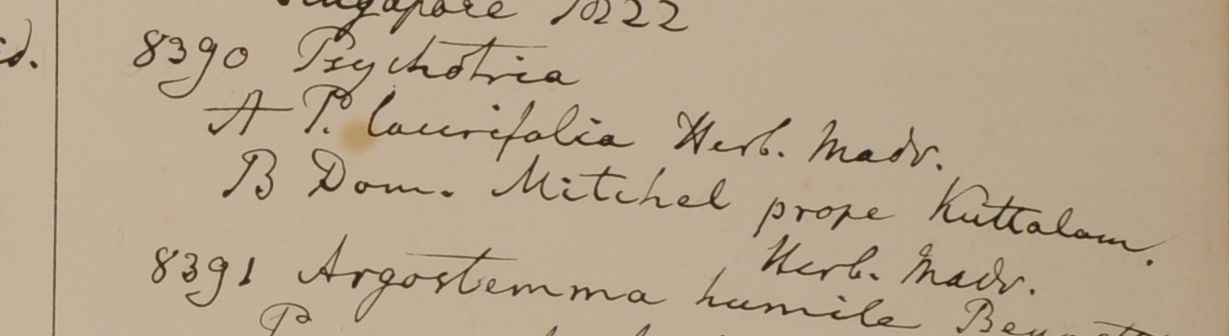 Singapore 1822
d.
8390 Psychotria
A P. laurifolia Herb. Madr.
B Dom. Mitchel prope Kuttalam.
Herb. Madr.
8391 Argostemma humile Bennett